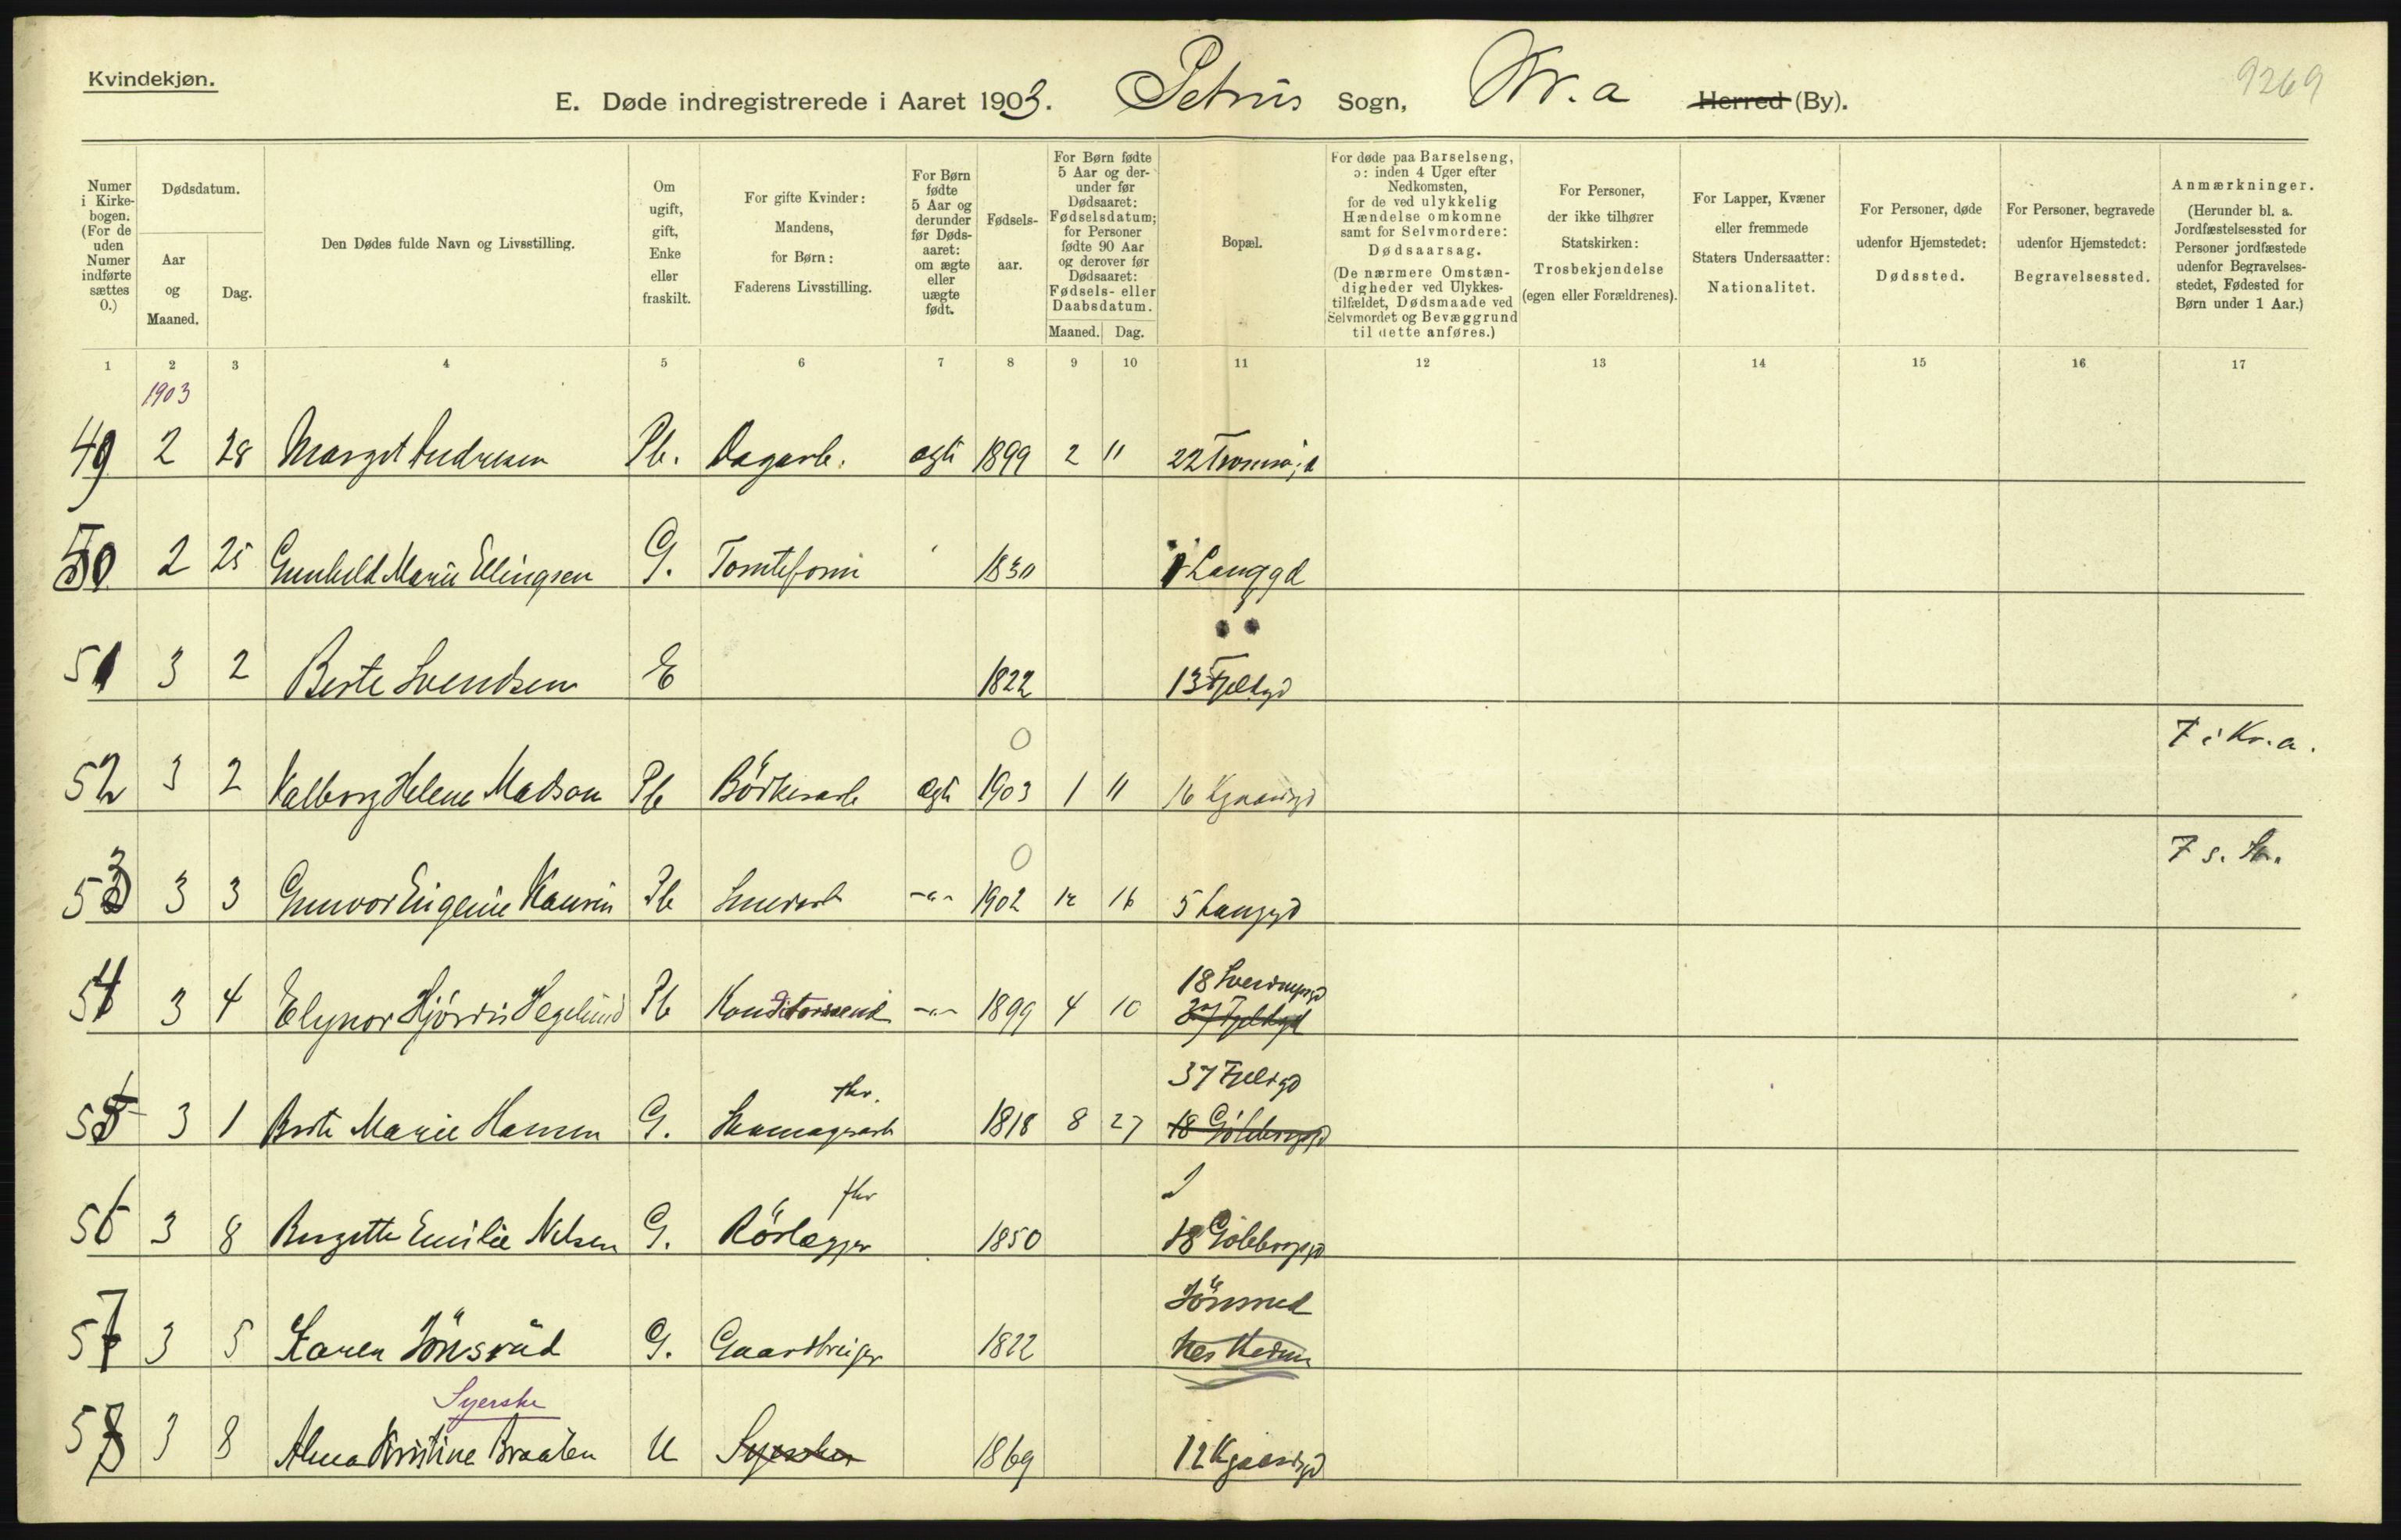 Kvindekjøn.
E. Døde indregistrerede i Aaret 1903. Petrus Sogn, Kr.a Herred (By).
9269
Numer i Kirkebogen. (For de uden Numer indførte sættes 0.)
Dødsdatum.
Aar og Maaned.
Dag.
Den Dødes fulde Navn og Livsstilling.
Om ugift, gift, Enke eller fraskilt.
For gifte Kvinder: Mandens, for Børn: Faderens Livsstilling.
For Børn fødte 5 Aar og derunder før Dødsaaret: om ægte eller uægte født.
Fødselsaar.
For Børn fødte 5 Aar og derunder før Dødsaaret: Fødselsdatum; for Personer fødte 90 Aar og derover før Dødsaaret: Fødsels- eller Daabsdatum.
Maaned. Dag.
Bopæl.
For døde paa Barselseng, ɔ: inden 4 Uger efter Nedkomsten, for de ved ulykkelig Hændelse omkomne samt for Selvmordere: Dødsaarsag. (De nærmere Omstændigheder ved Ulykkestilfældet, Dødsmaade ved Selvmordet og Bevæggrund til dette anføres.)
For Personer, der ikke tilhører Statskirken: Trosbekjendelse (egen eller Forældrenes).
For Lapper, Kvæner eller fremmede Staters Undersaatter: Nationalitet.
For Personer, døde udenfor Hjemstedet: Dødssted.
For Personer, begravede udenfor Hjemstedet: Begravelsessted.
Anmærkninger. (Herunder bl. a. Jordfæstelsessted for Personer jordfæstede udenfor Begravelsesstedet, Fødested for Børn under 1 Aar.)
1 2 3 4 5 6 7 8 9 10 11 12 13 14 15 16 17
1903
49 2 28 Margit Andresen Pb. Dagarb. ægte 1899 2 11 22 Tromsøgd
50 2 25 Gunhild Marie Ellingsen G. Tomteform 1830 1 Langgd
51 3 2 Berte Svendsen E 1822 13 Fjeldgd
0 7 i Kr.a.
52 3 2 Valborg Helene Madsen Pb Bødkerarb ægte 1903 1 11 16 Kgaardgd
0
53 3 3 Gunvor Eugenie Hansen Pb -"- 1902 12 16 5 Langgd
18 Sverdrupsgd
54 3 4 Elynor Hjørdis Hegelund Pb Konditorsvend -"- 1899 4 10 37 Fjeldgd
fhv. 37 Fjeldgd
55 3 1 Berte Marie Hansen G. 1818 8 27 18 Gøteborggd
fhv
56 3 8 Birgitte Emilie Nilsen G. Rørlægger 1850 18 Gøteborggd
Jönsrud
57 3 5 Karen Jönsrud G. Gaardbruger 1822 Nes Hedm
Syerske
58 3 8 Alma Kristine Braaten U Syerske 1869 12 Kgaardgd